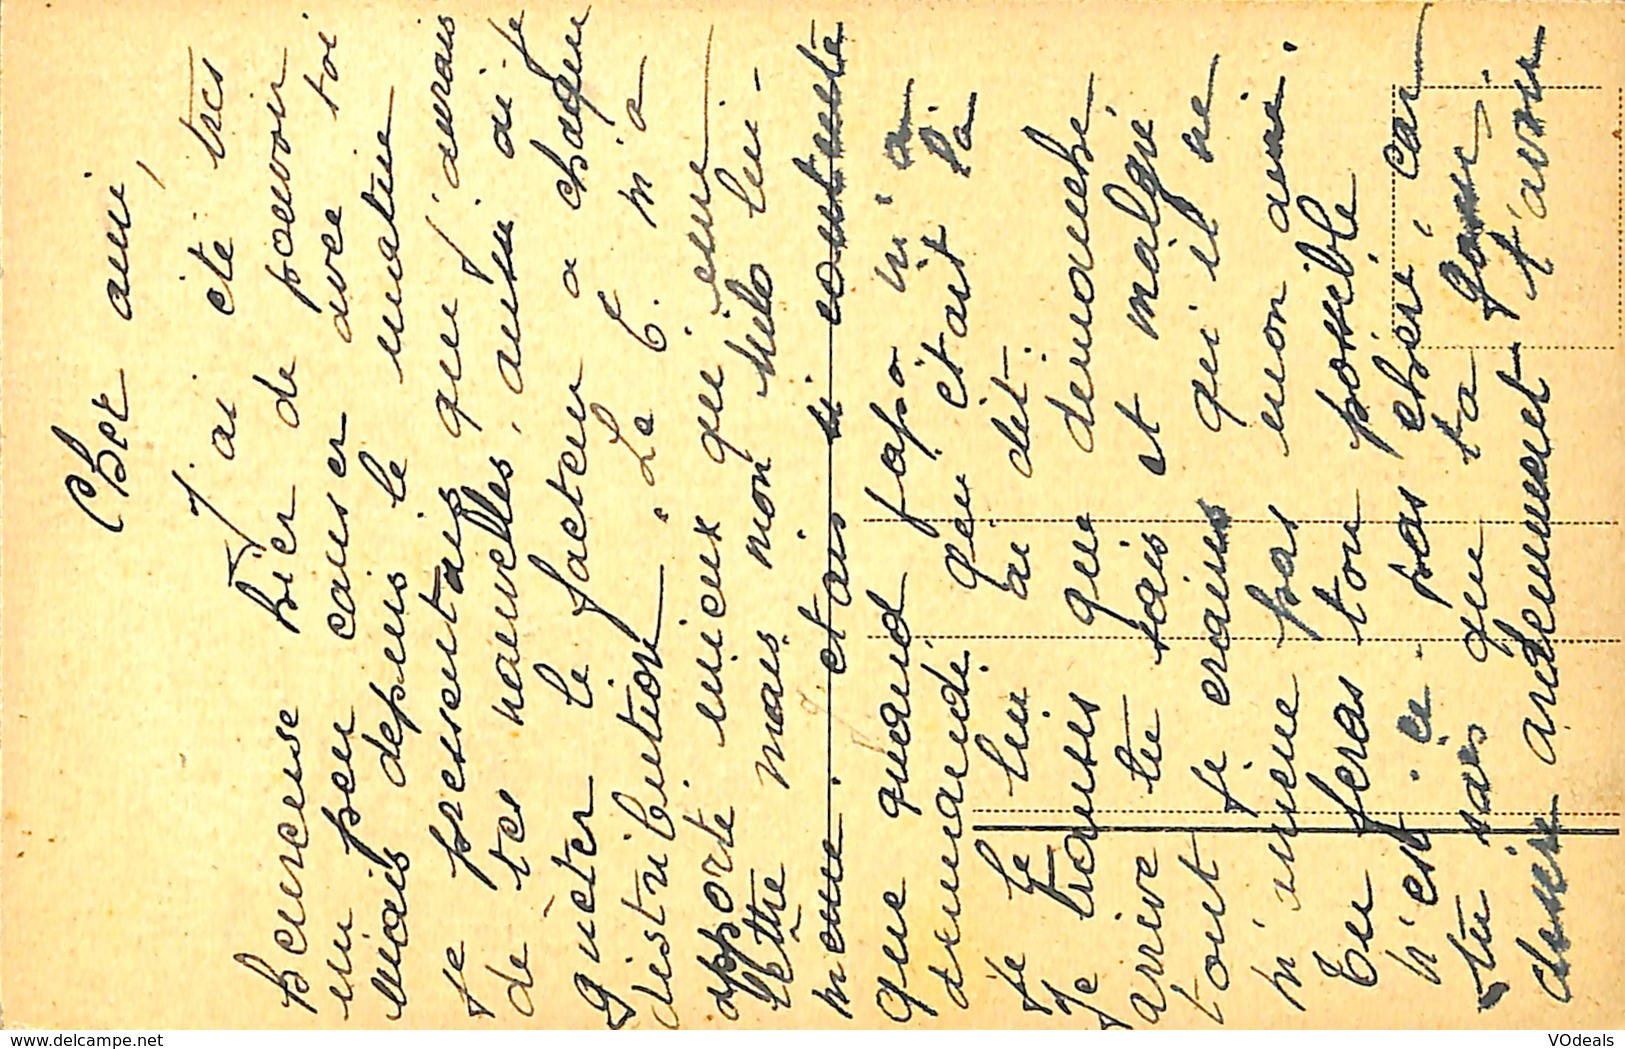 Cher ami,
J'ai été très
heureuse hier de pouvoir
un peu causer avec toi
mais depuis le matin
je pressentais que j'aurais
de tes nouvelles, aussi ai-je
guèter le facteur a chaque
distribution. Le C. m'a
apporté mieux qu'une
lettre mais mon Milo lui-
même. etais si contente
que quand papa m'a
demandé qui était là
je le lui ai dit.
Je trouves que dimanche
arrive tu sais et malgré
tout je crains qu'il ne
m'arrive pas mon ami.
Tu feras ton possible
n'est-ce-pas chéri, car
tu sais que ta
désire ardemment t'avoir
VOdeals
delcampe.net